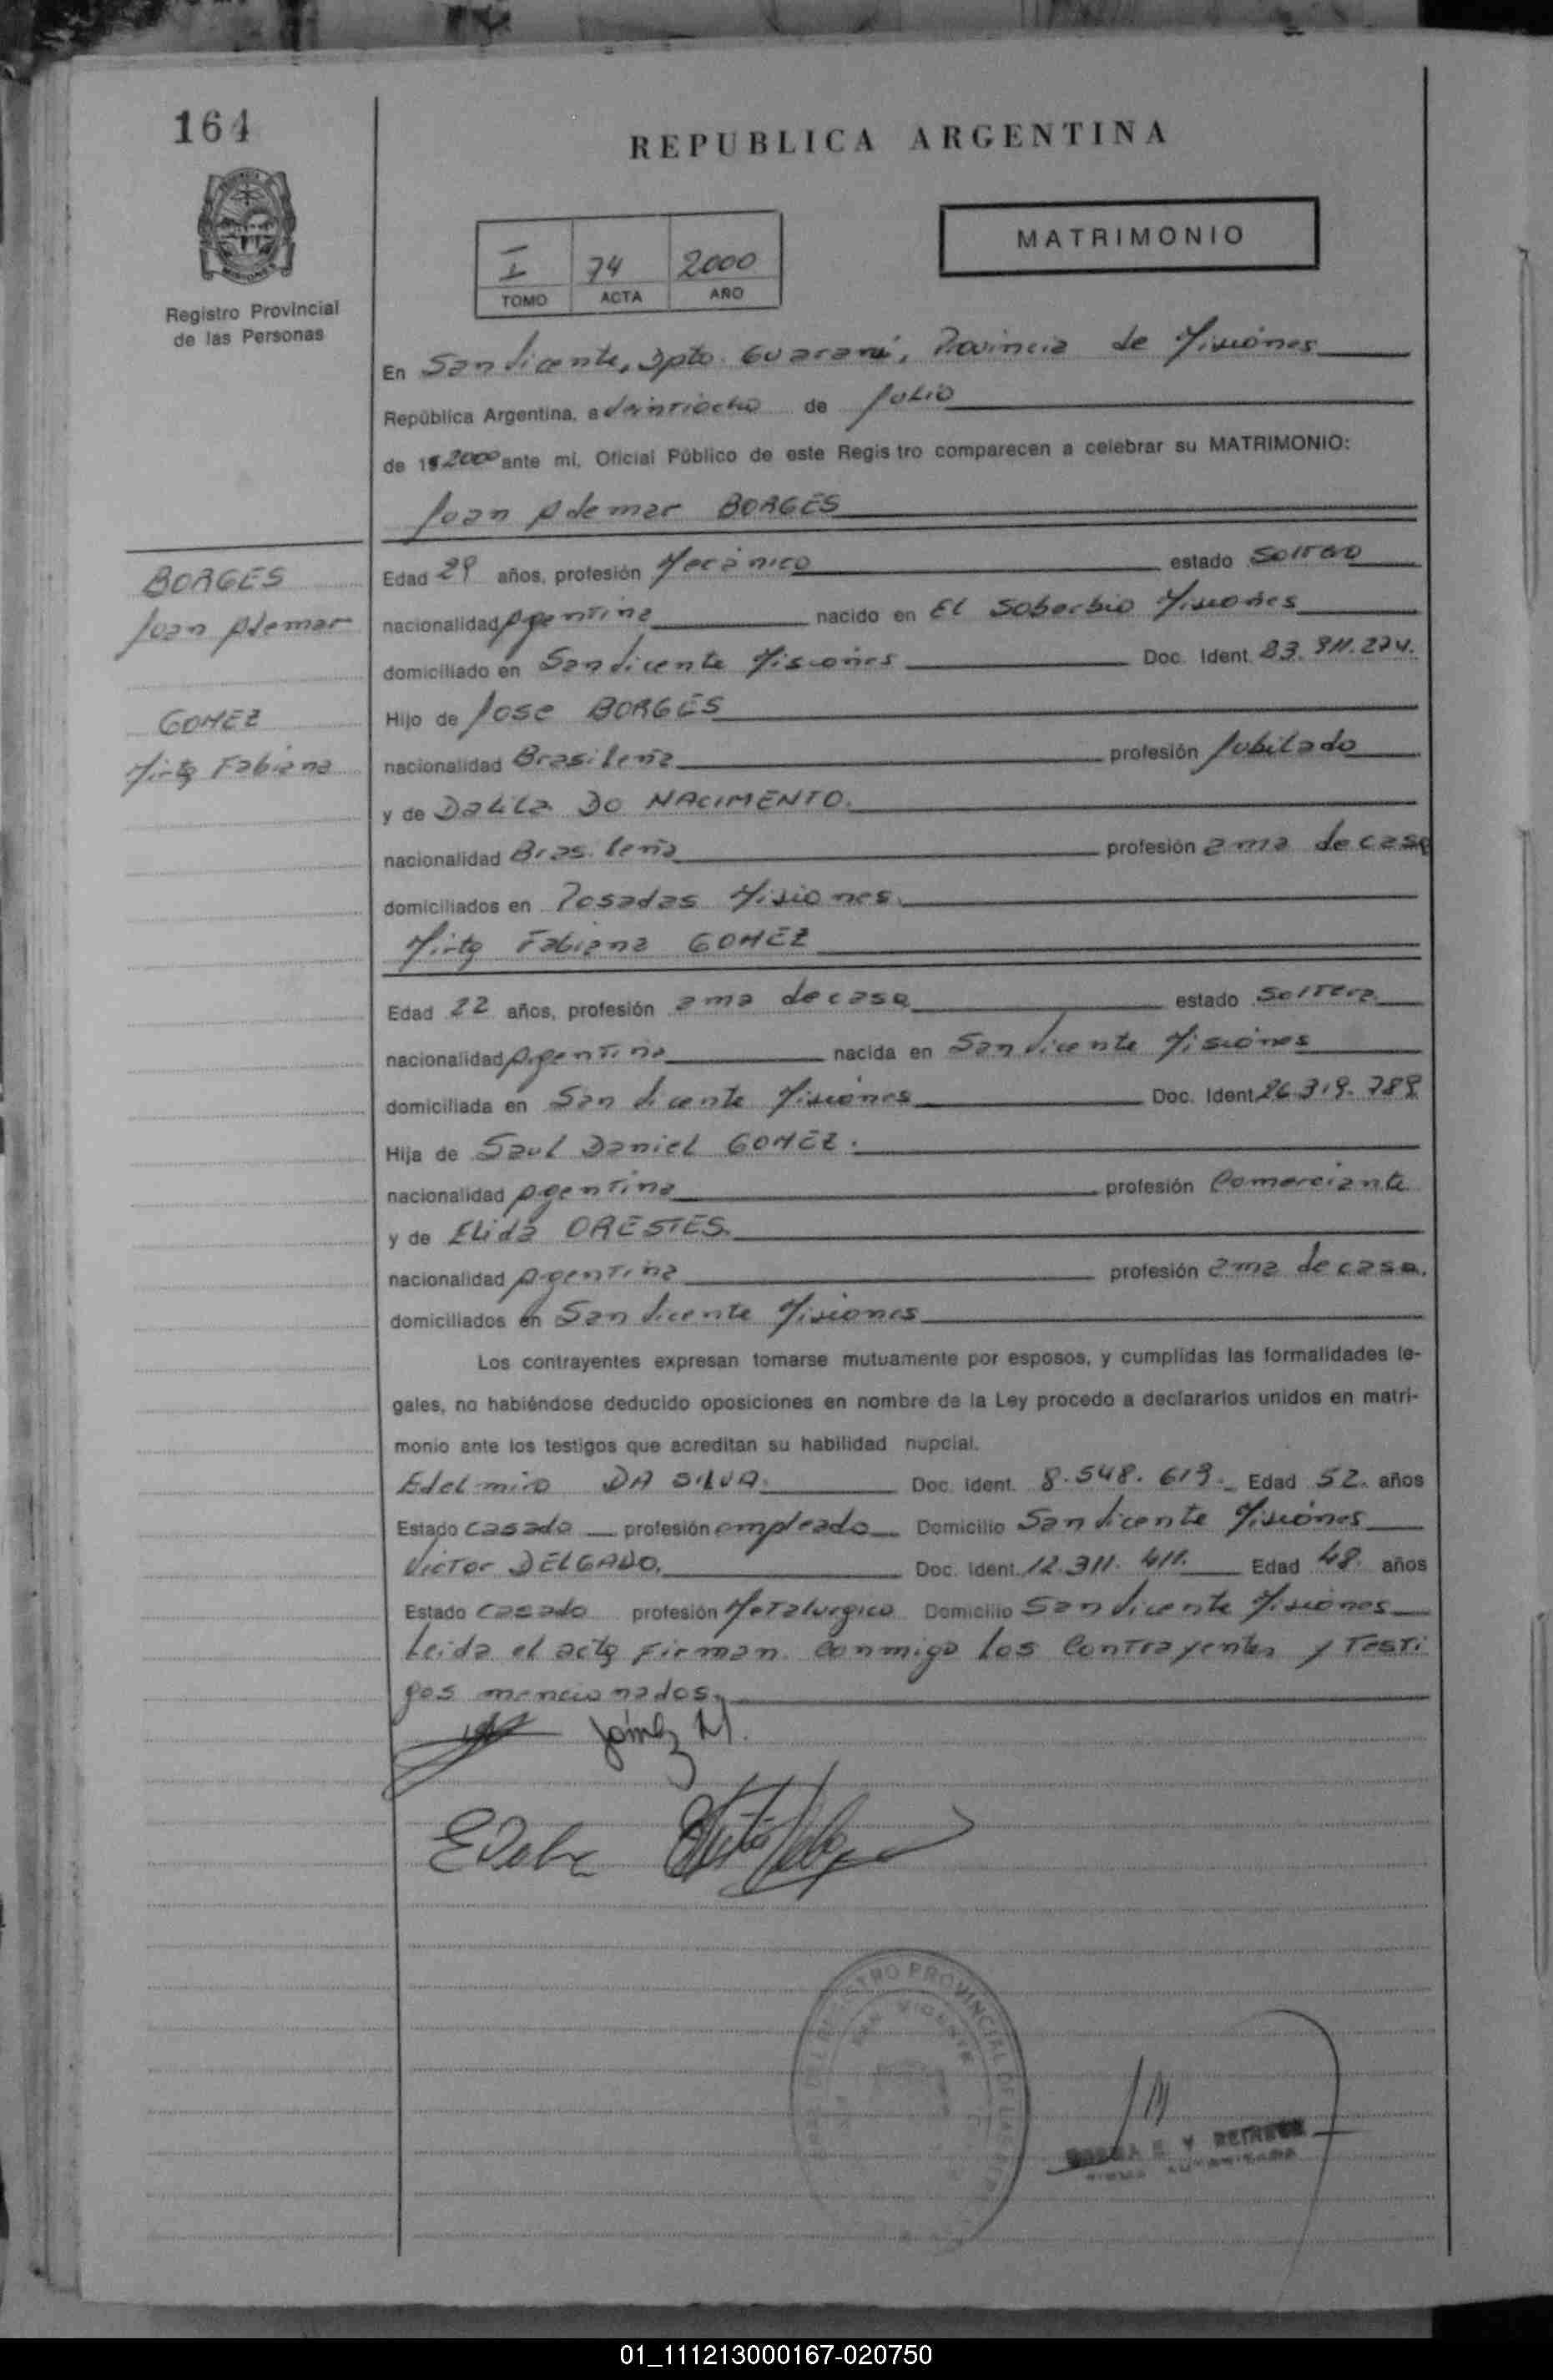 164
REPUBLICA ARGENTINA
MATRIMONIO
I 74 2000
TOMO ACTA AÑO
Registro Provincial
de las Personas
En San Vicente, Dpto. Guaraní, Provincia de Misiones
República Argentina, a veintiocho de Julio
de 19 2000 ante mí, Oficial Público de este Regis tro comparecen a celebrar su MATRIMONIO:
Juan Ademar BORGES
BORGES
Juan Ademar
GOMEZ
Mirta Fabiana
Edad 29 años, profesión Mecánico estado Soltero
nacionalidad Argentina nacido en El Soberbio Misiones
domiciliado en San Vicente Misiones Doc. Ident.
Hijo de Jose BORGES
nacionalidad Brasileña profesión Jubilado
y de Dalila DO NACIMENTO.
nacionalidad Brasileña profesión ama de casa
domiciliados en Posadas Misiones.
Mirta Fabiana GOMEZ
Edad 22 años, profesión ama de casa estado Soltera
nacionalidad Argentina nacida en San Vicente Misiones
domiciliada en San Vicente Misiones Doc. Ident. 26.319.789
Hija de Saul Daniel GOMEZ.
nacionalidad Argentina profesión Comerciante
y de Elida ORESTES.
nacionalidad Argentina profesión ama de casa.
domiciliados en San Vicente Misiones
Los contrayentes expresan tomarse mutuamente por esposos, y cumplidas las formalidades le-
gales, no habiéndose deducido oposiciones en nombre de la Ley procedo a declararlos unidos en matri-
monio ante los testigos que acreditan su habilidad nupcial.
Edelmiro DA SILVA. Doc. Ident. 8.548.619. Edad 52. años
Estado Casado profesión empleado Domicilio San Vicente Misiones
Victor DELGADO. Doc. Ident. 12.311.411. Edad 48. años
Estado Casado profesión Metalurgico Domicilio San Vicente Misiones
Leida el acta Firman conmigo los Contrayentes y Testi
gos mencionados.
Gómez M.
REGISTRO PROVINCIAL DE LAS
SAN VICENTE
FIRMA AUTORIZADA
01_111213000167-020750